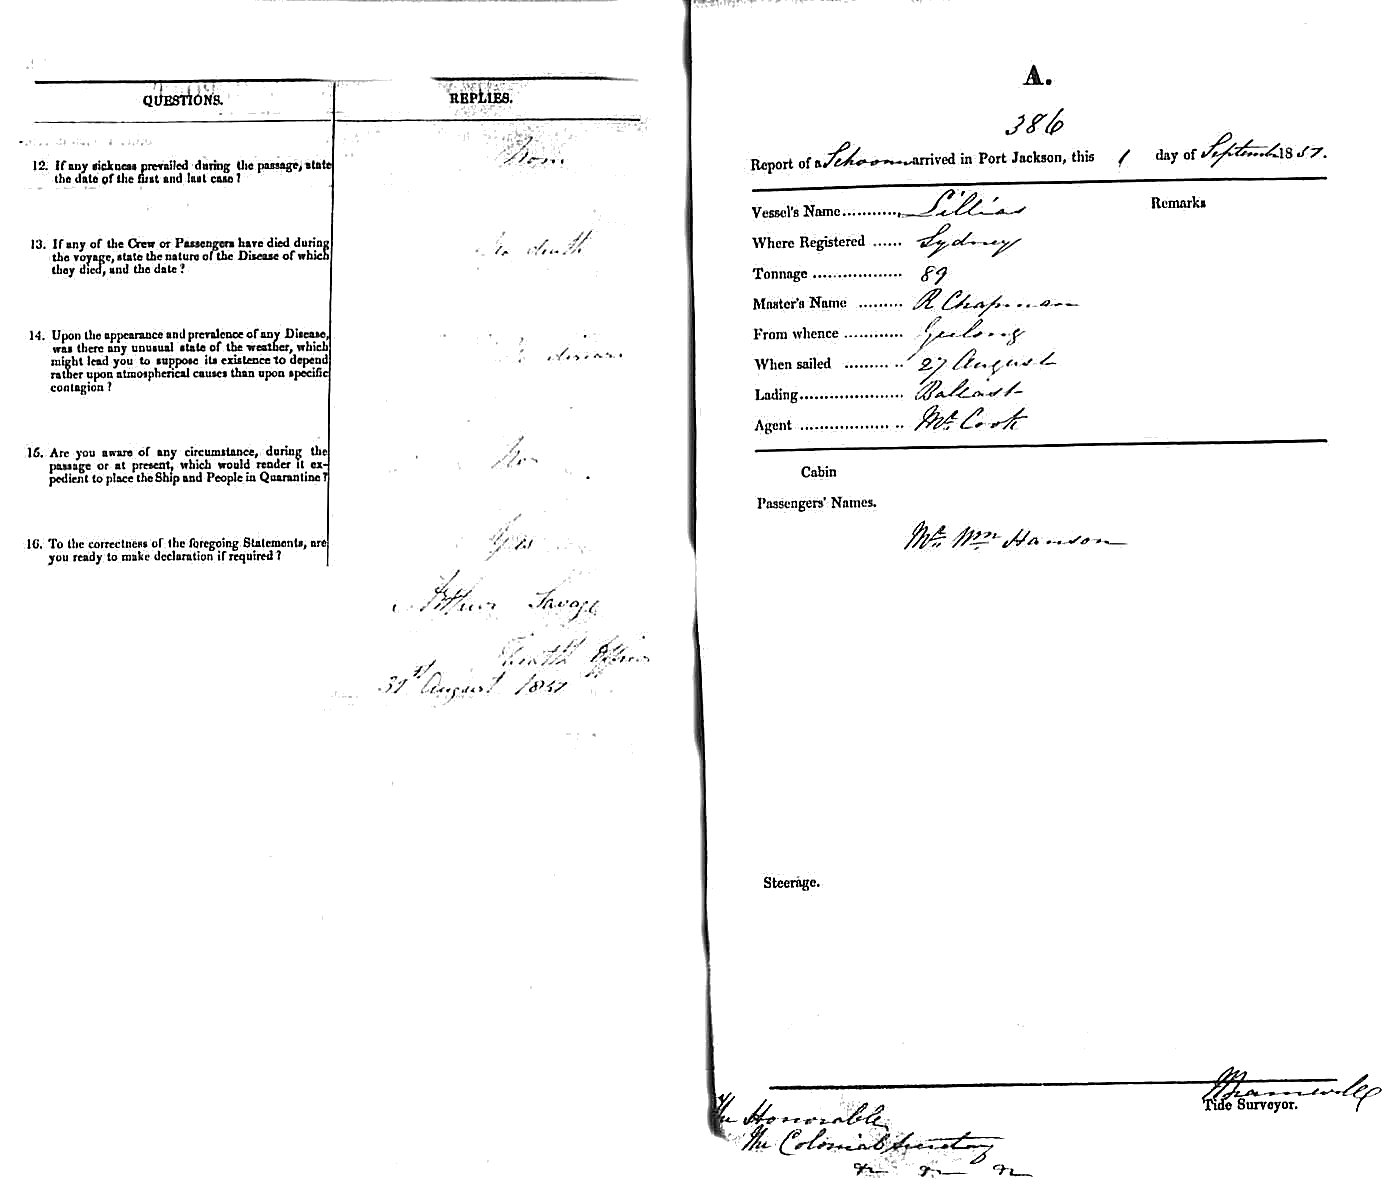 QUESTIONS.
REPLIES.
12. If any sickness prevailed during the passage, state
the date of the first and last case?
None
13. If any of the Crew or Passengers have died during
the voyage, state the nature of the Disease of which
they died, and the date?
No death
14. Upon the appearance and prevalence of any Disease,
was there any unusual state of the weather, which
might lead you to suppose its existence to depend
rather upon atmospherical causes than upon specific
contagion?
No disease
15. Are you aware of any circumstance, during the
passage or at present, which would render it ex-
pedient to place the Ship and People in Quarantine?
16. To the correctness of the foregoing Statements, are
you ready to make declaration if required?
Yes
Arthur Savage
Health Officer
31st August 1851
A.
386
Report of a Schooner arrived in Port Jackson, this 1 day of September 1851.
Vessel's Name............ Lillias
Remarks
Where Registered ...... Sydney
Tonnage .................. 89
Master's Name ......... R Chapman
From whence ............ Geelong
When sailed ......... .. 27 August
Lading..................... Ballast
Agent .................. .. Mr. Cook
Cabin
Passengers' Names.
Mr. Wm Hanson
Steerage.
Tide Surveyor.
The Honorable
The Colonial Secretary